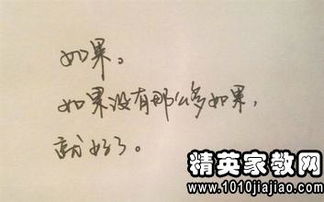 如果。
如果没有那么多如果，
就好了。
精英家教网
www.1010jiajiao.com